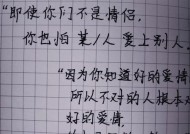 “即使你们不是情侣.
你也怕某/人爱上别人.
“因为你知道好的爱情
所以不对的人根本
好的爱情